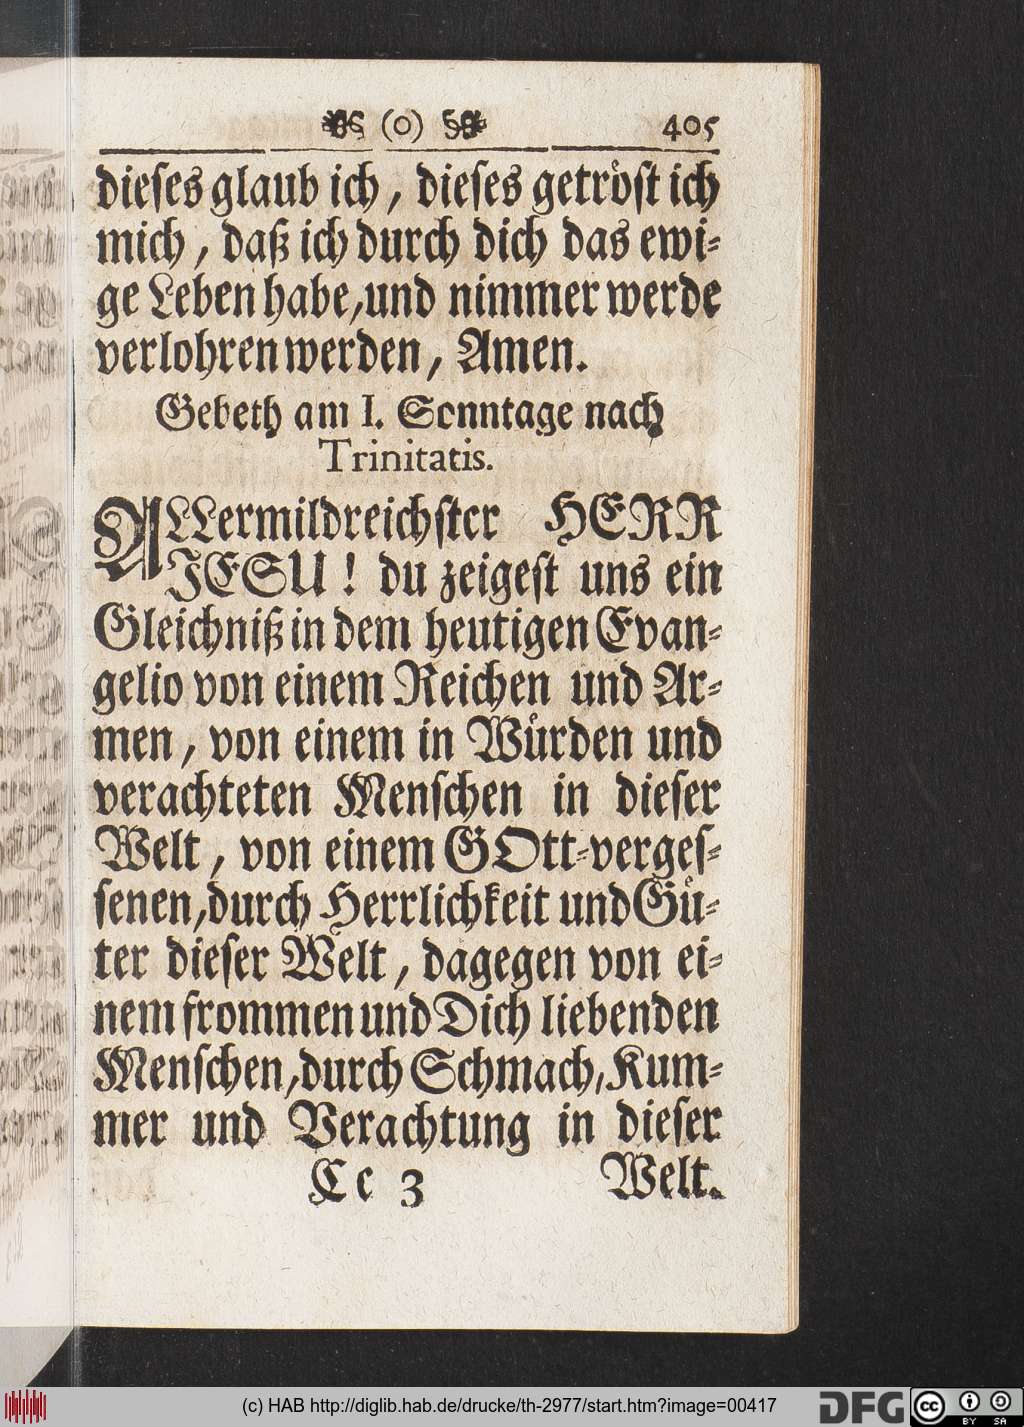 (o) 405
dieses glaub ich, dieses getröst ich
mich, daß ich durch dich das ewi-
ge Leben habe, und nimmer werde
verlohren werden, Amen.
Gebeth am I. Sonntage nach
Trinitatis.
ALLermildreichster HERR
JESU! du zeigest uns ein
Gleichniß in dem heutigen Evan-
gelio von einem Reichen und Ar-
men, von einem in Würden und
verachteten Menschen in dieser
Welt, von einem GOtt-verges-
senen, durch Herrlichkeit und Gü-
ter dieser Welt, dagegen von ei-
nem frommen und Dich liebenden
Menschen, durch Schmach, Kum-
mer und Verachtung in dieser
Cc 3 Welt.
(c) HAB http://diglib.hab.de/drucke/th-2977/start.htm?image=00417
DFG cc BY SA